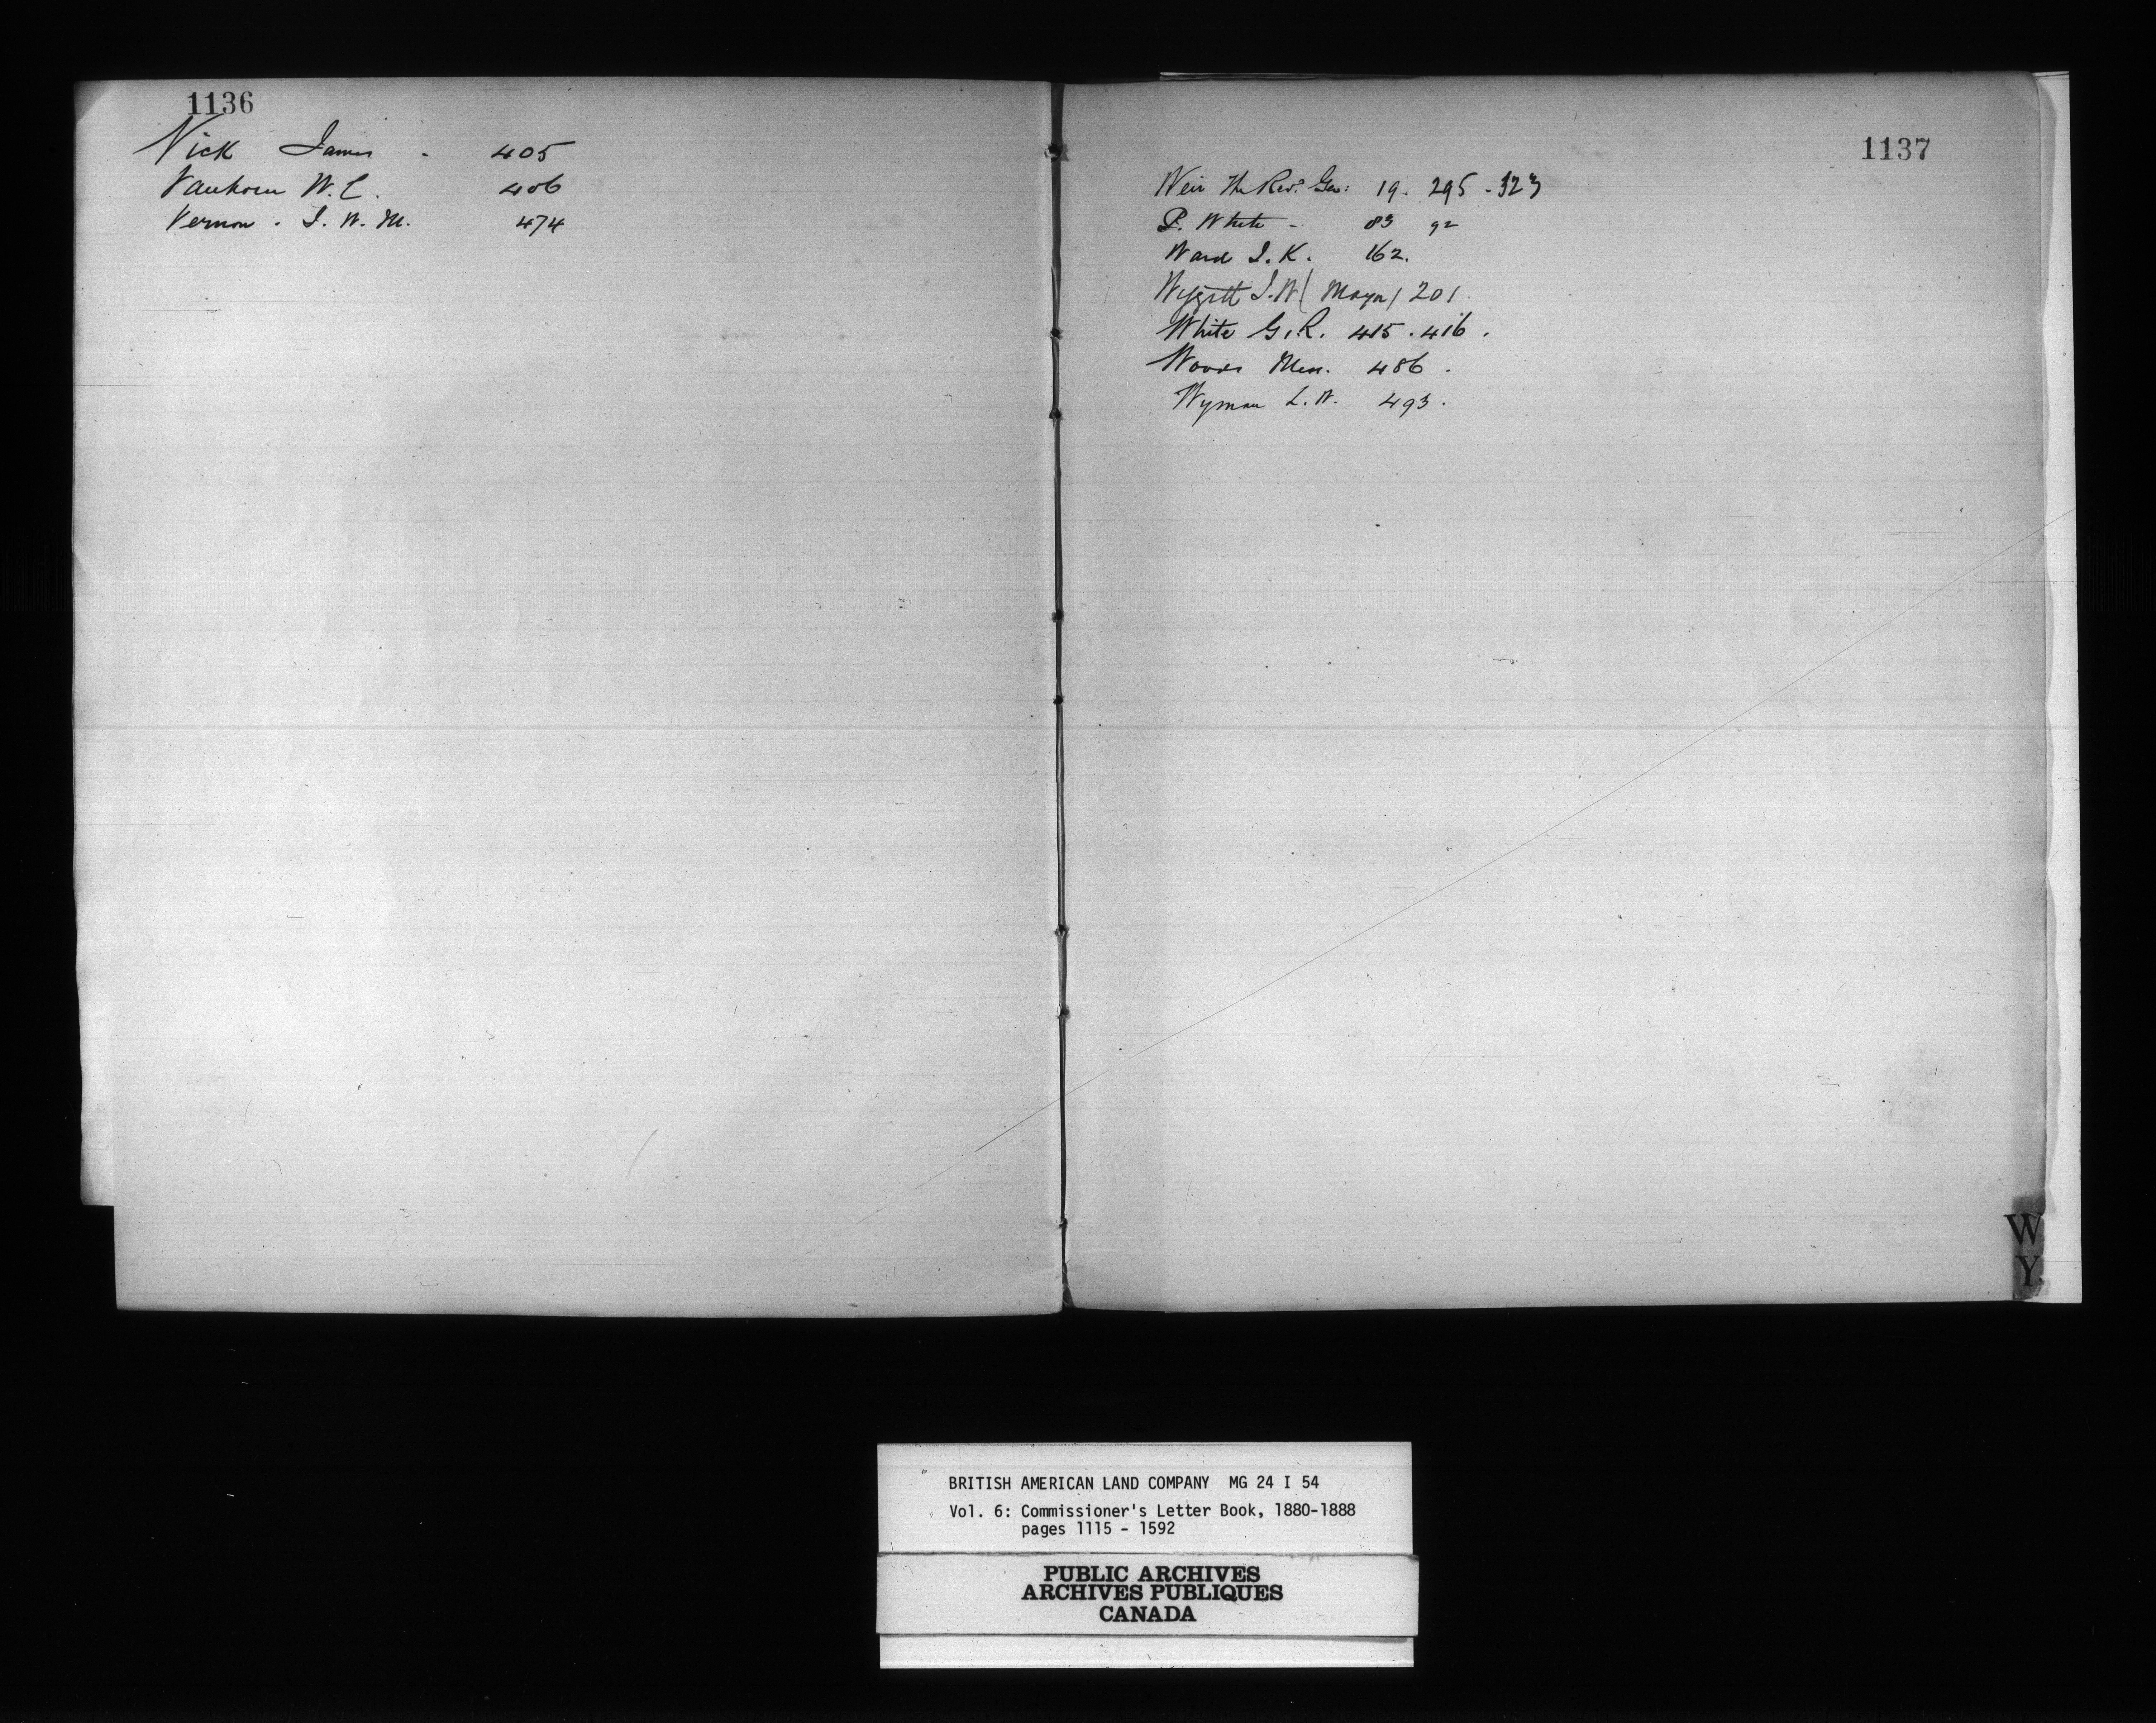 1136
Vick James - 405
Vanhorn W. C. 406
Vernon - J. W. M. 474
1137
Weir The Revd. Geo: 19. 295 - 323
P. White - 83 92
Ward J. K. 162.
J. W ( Mayor ) 201.
White G. R. 415 . 416 .
Woods 486 .
Wyman L. W. 493 .
W
Y.
BRITISH AMERICAN LAND COMPANY MG 24 I 54
Vol. 6: Commissioner's Letter Book, 1880-1888
pages 1115 - 1592
PUBLIC ARCHIVES
ARCHIVES PUBLIQUES
CANADA